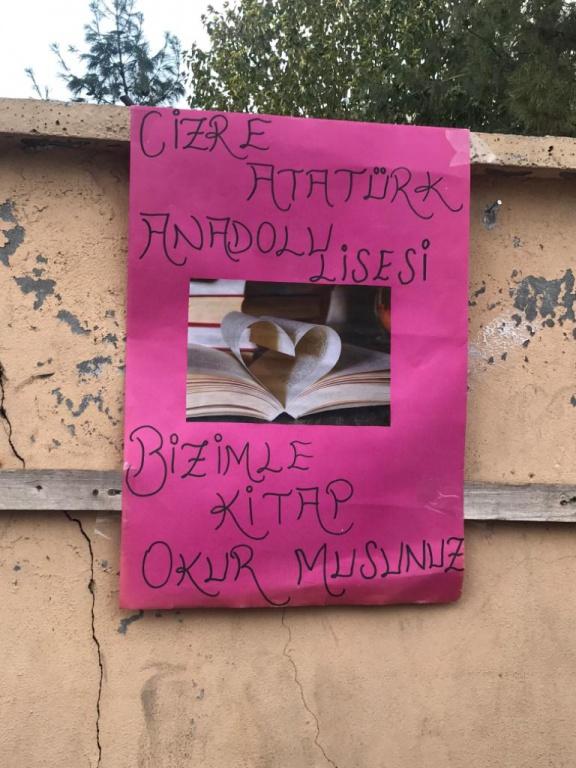 CİZRE
ATATÜRK
ANADOLU
LİSESİ
BİZİMLE
KİTAP
OKUR MUSUNUZ